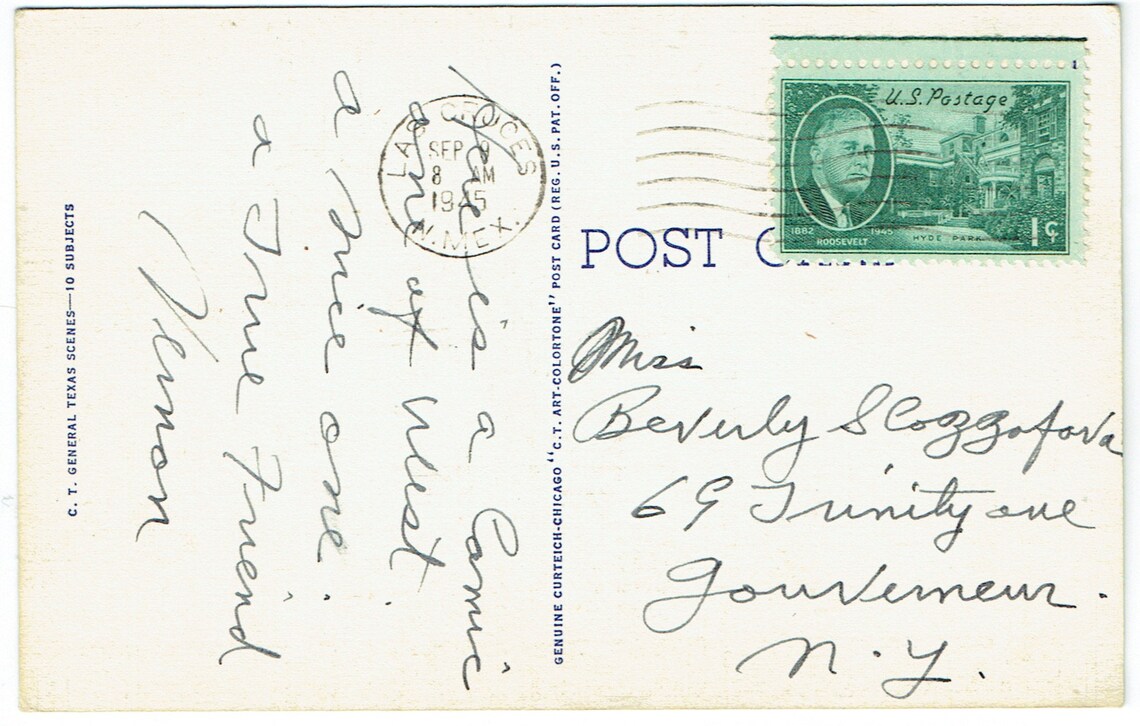 Here is a Comic
one of West.
a Nice one.
a True Friend
Vernon
C. T. GENERAL TEXAS SCENES—10 SUBJECTS
GENUINE CURTEICH-CHICAGO "C. T. ART-COLORTONE" POST CARD (REG. U.S. PAT. OFF.)
LAS CRUCES
SEP 9
8 AM
1945
N. MEX.
1
U.S. Postage
1882 1945
ROOSEVELT
HYDE PARK
1¢
POST
Miss
Beverly Scozzafava
69 Trinity ave
Gouverneur.
N. Y.